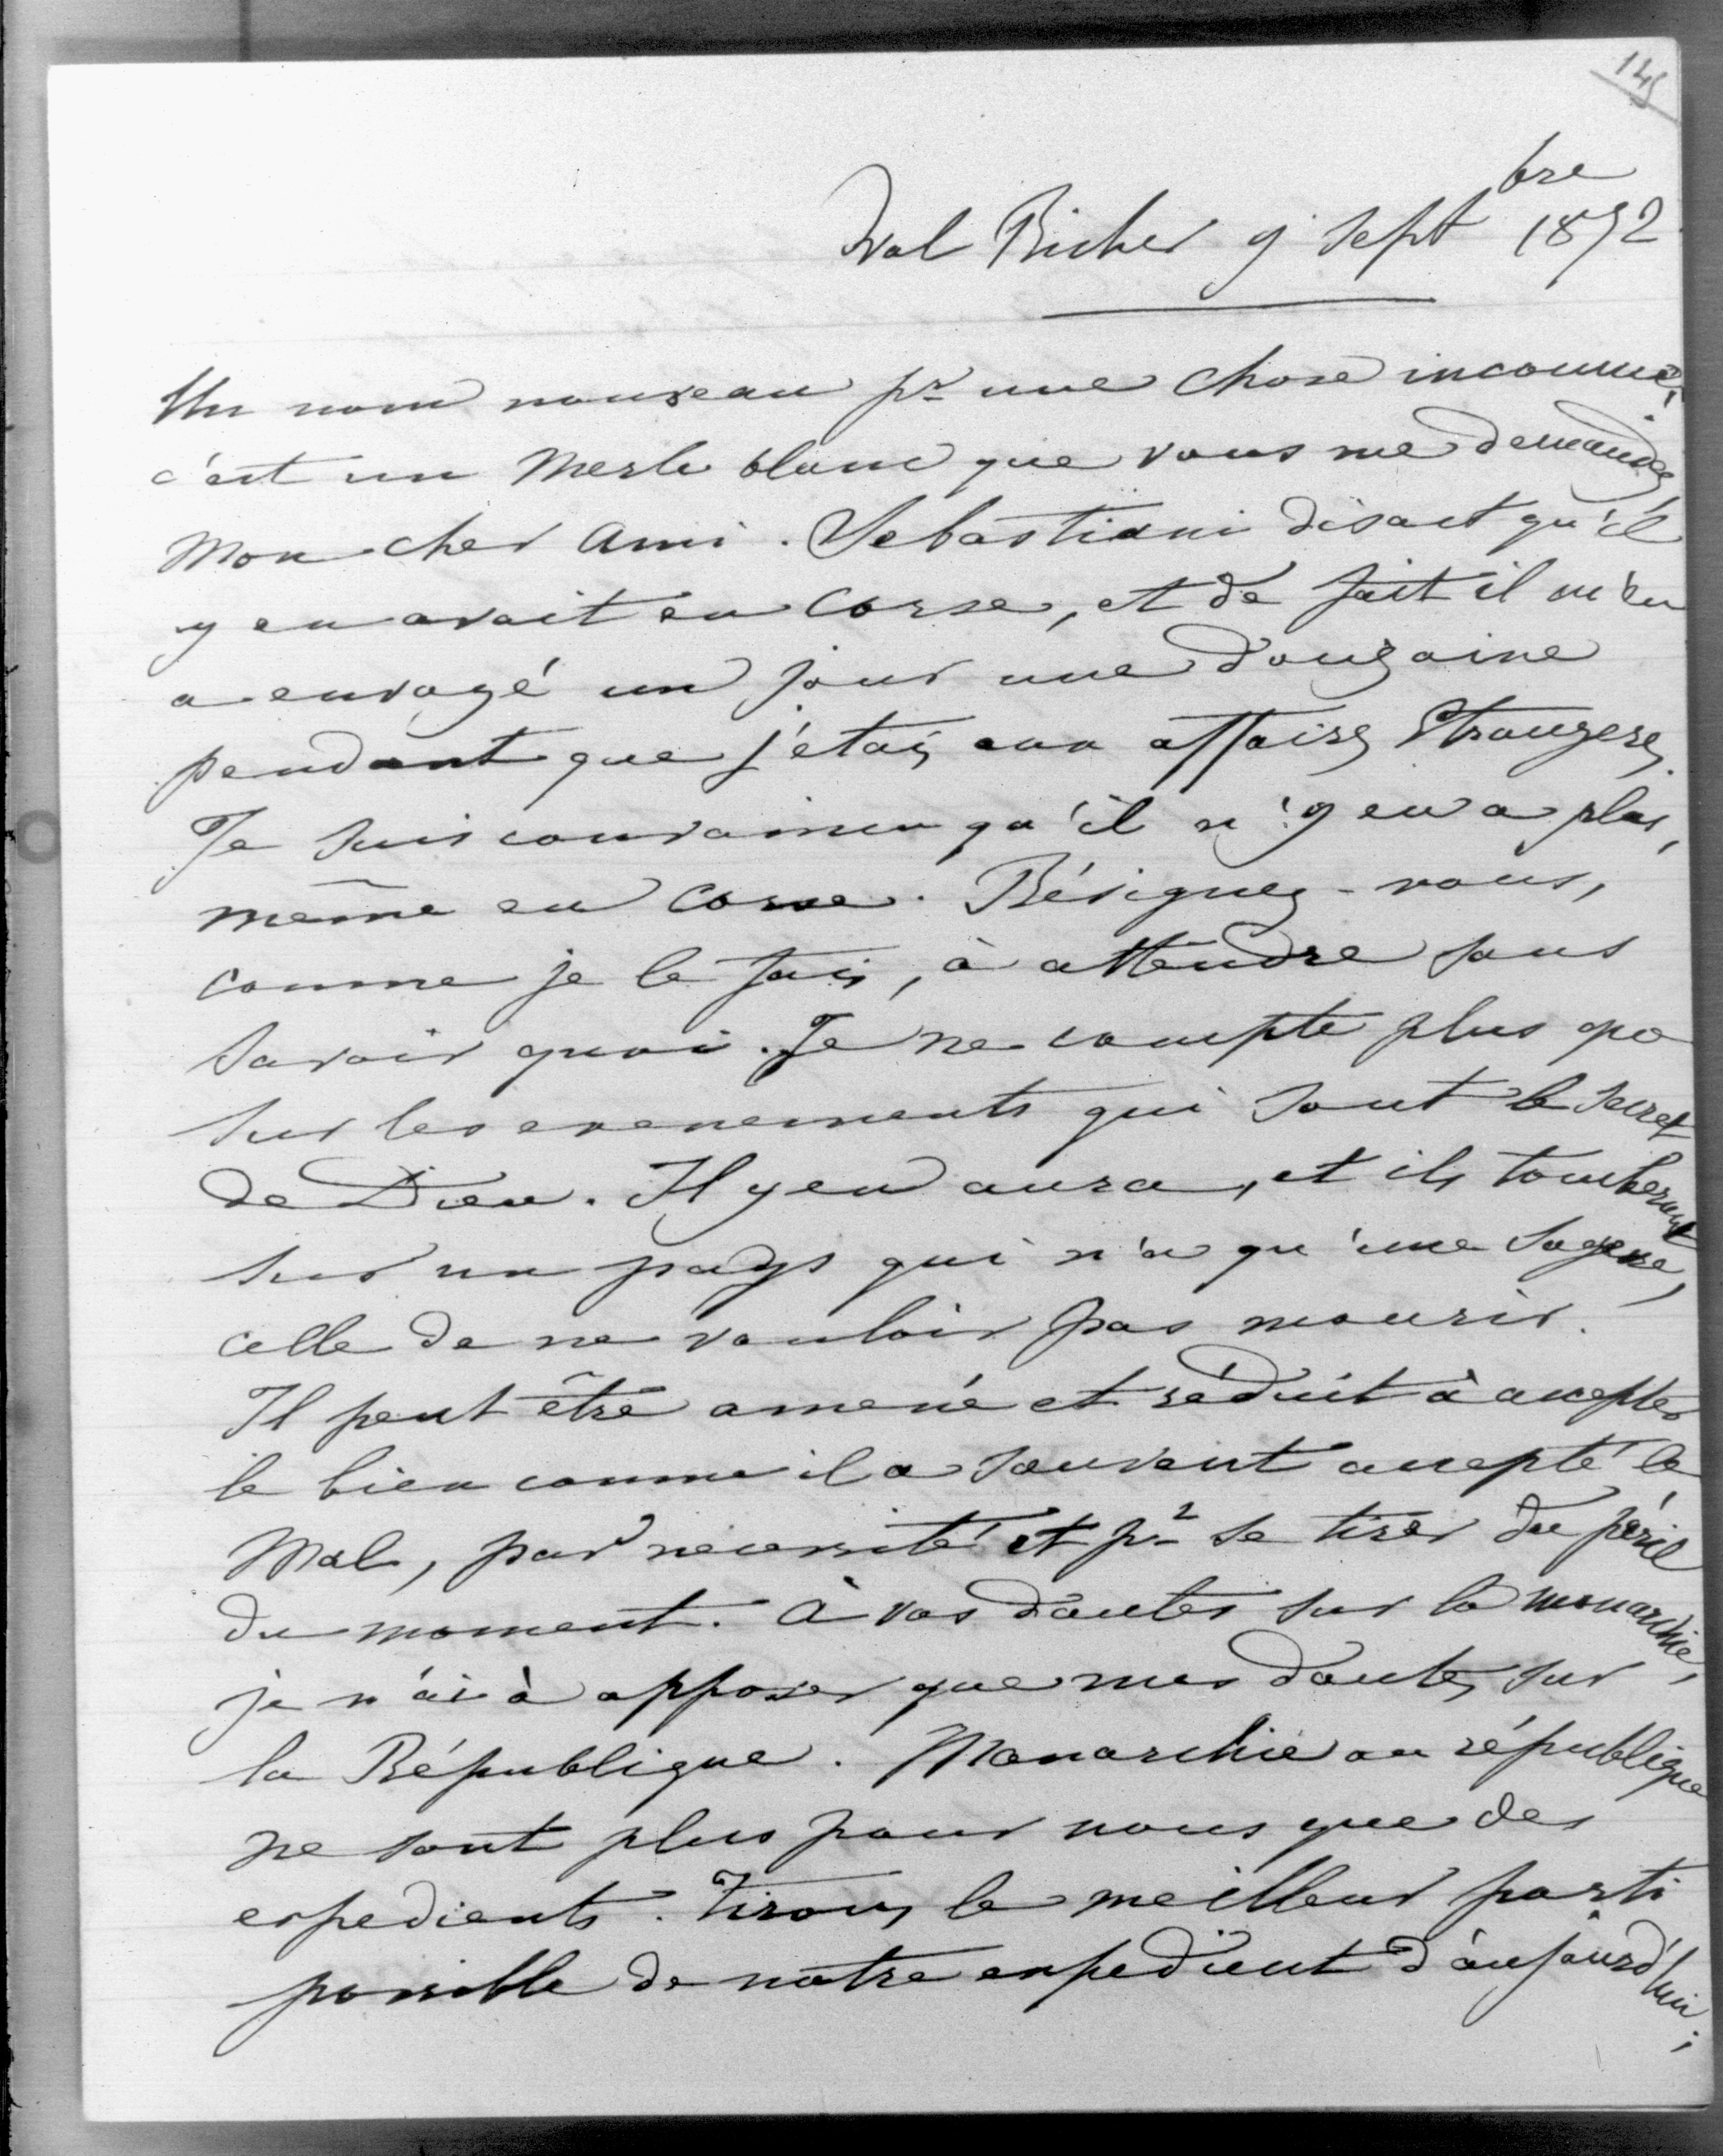 145
Val Richer 9 septbre 1872
Un nom nouveau pr une chose inconnue,
c'est un Merle blanc que vous me demandez,
Mon cher Ami. Sebastiani disait qu'il
y en avait en Corse, et de fait il m'en
a envoyé un jour une douzaine
pendant que j'etais aux affaires Etrangeres.
Je suis convaincu qu'il n'y en a plus,
même en Corse. Résignez-vous,
comme je le fais, à attendre sans
savoir quoi. Je ne compte plus que
sur les evenements qui sont le secret
de Dieu. Il y en aura, et ils tomberont
sur un pays qui n'a qu'une sagesse,
celle de ne vouloir pas mourir.
Il peut être amené et réduit à accepter
le bien comme il a souvent accepté le
Mal, par necessité et pr se tirer du péril
du moment. à vos doutes sur la monarchie,
je n'ai à opposer que mes doutes sur
la République. Monarchie ou république
ne sont plus pour nous que des
expedients. Tirons le meilleur parti
possible de notre expedient d'aujourd'hui;